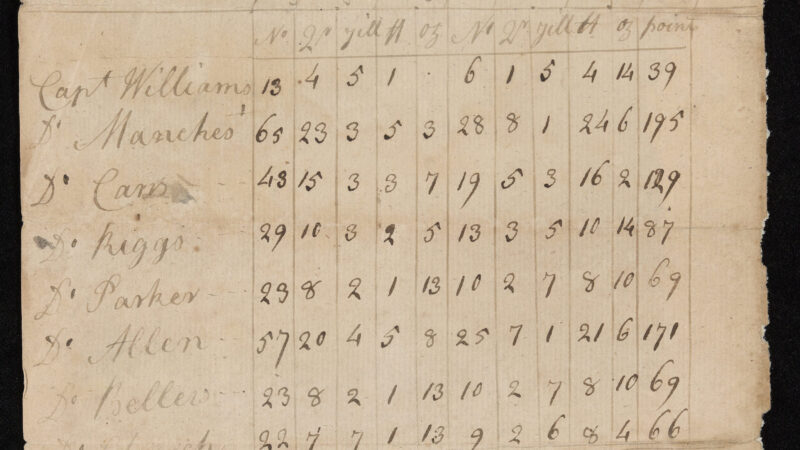 No Qr yill lt oz No Qr yill lt oz point
Capt Williams 13 4 5 1 6 1 5 4 14 39
Do Manches 65 23 3 5 3 28 8 1 24 6 195
Do Carr 43 15 3 3 7 19 5 3 16 2 129
Do Riggs 29 10 3 2 5 13 3 5 10 14 87
Do Parker 23 8 2 1 13 10 2 7 8 10 69
Do Allen 57 20 4 5 8 25 7 1 21 6 171
Do Bellew 23 8 2 1 13 10 2 7 8 10 69
22 7 7 1 13 9 2 6 8 4 66